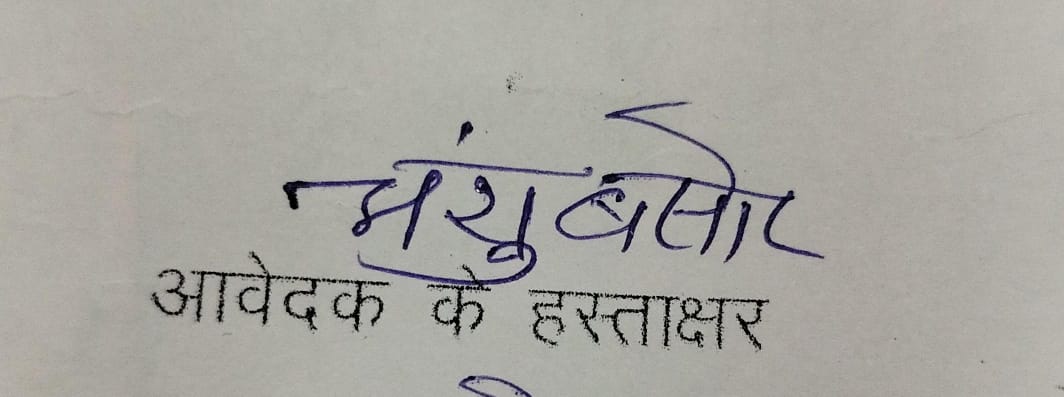 मंयु बसोर
आवेदक के हस्ताक्षर